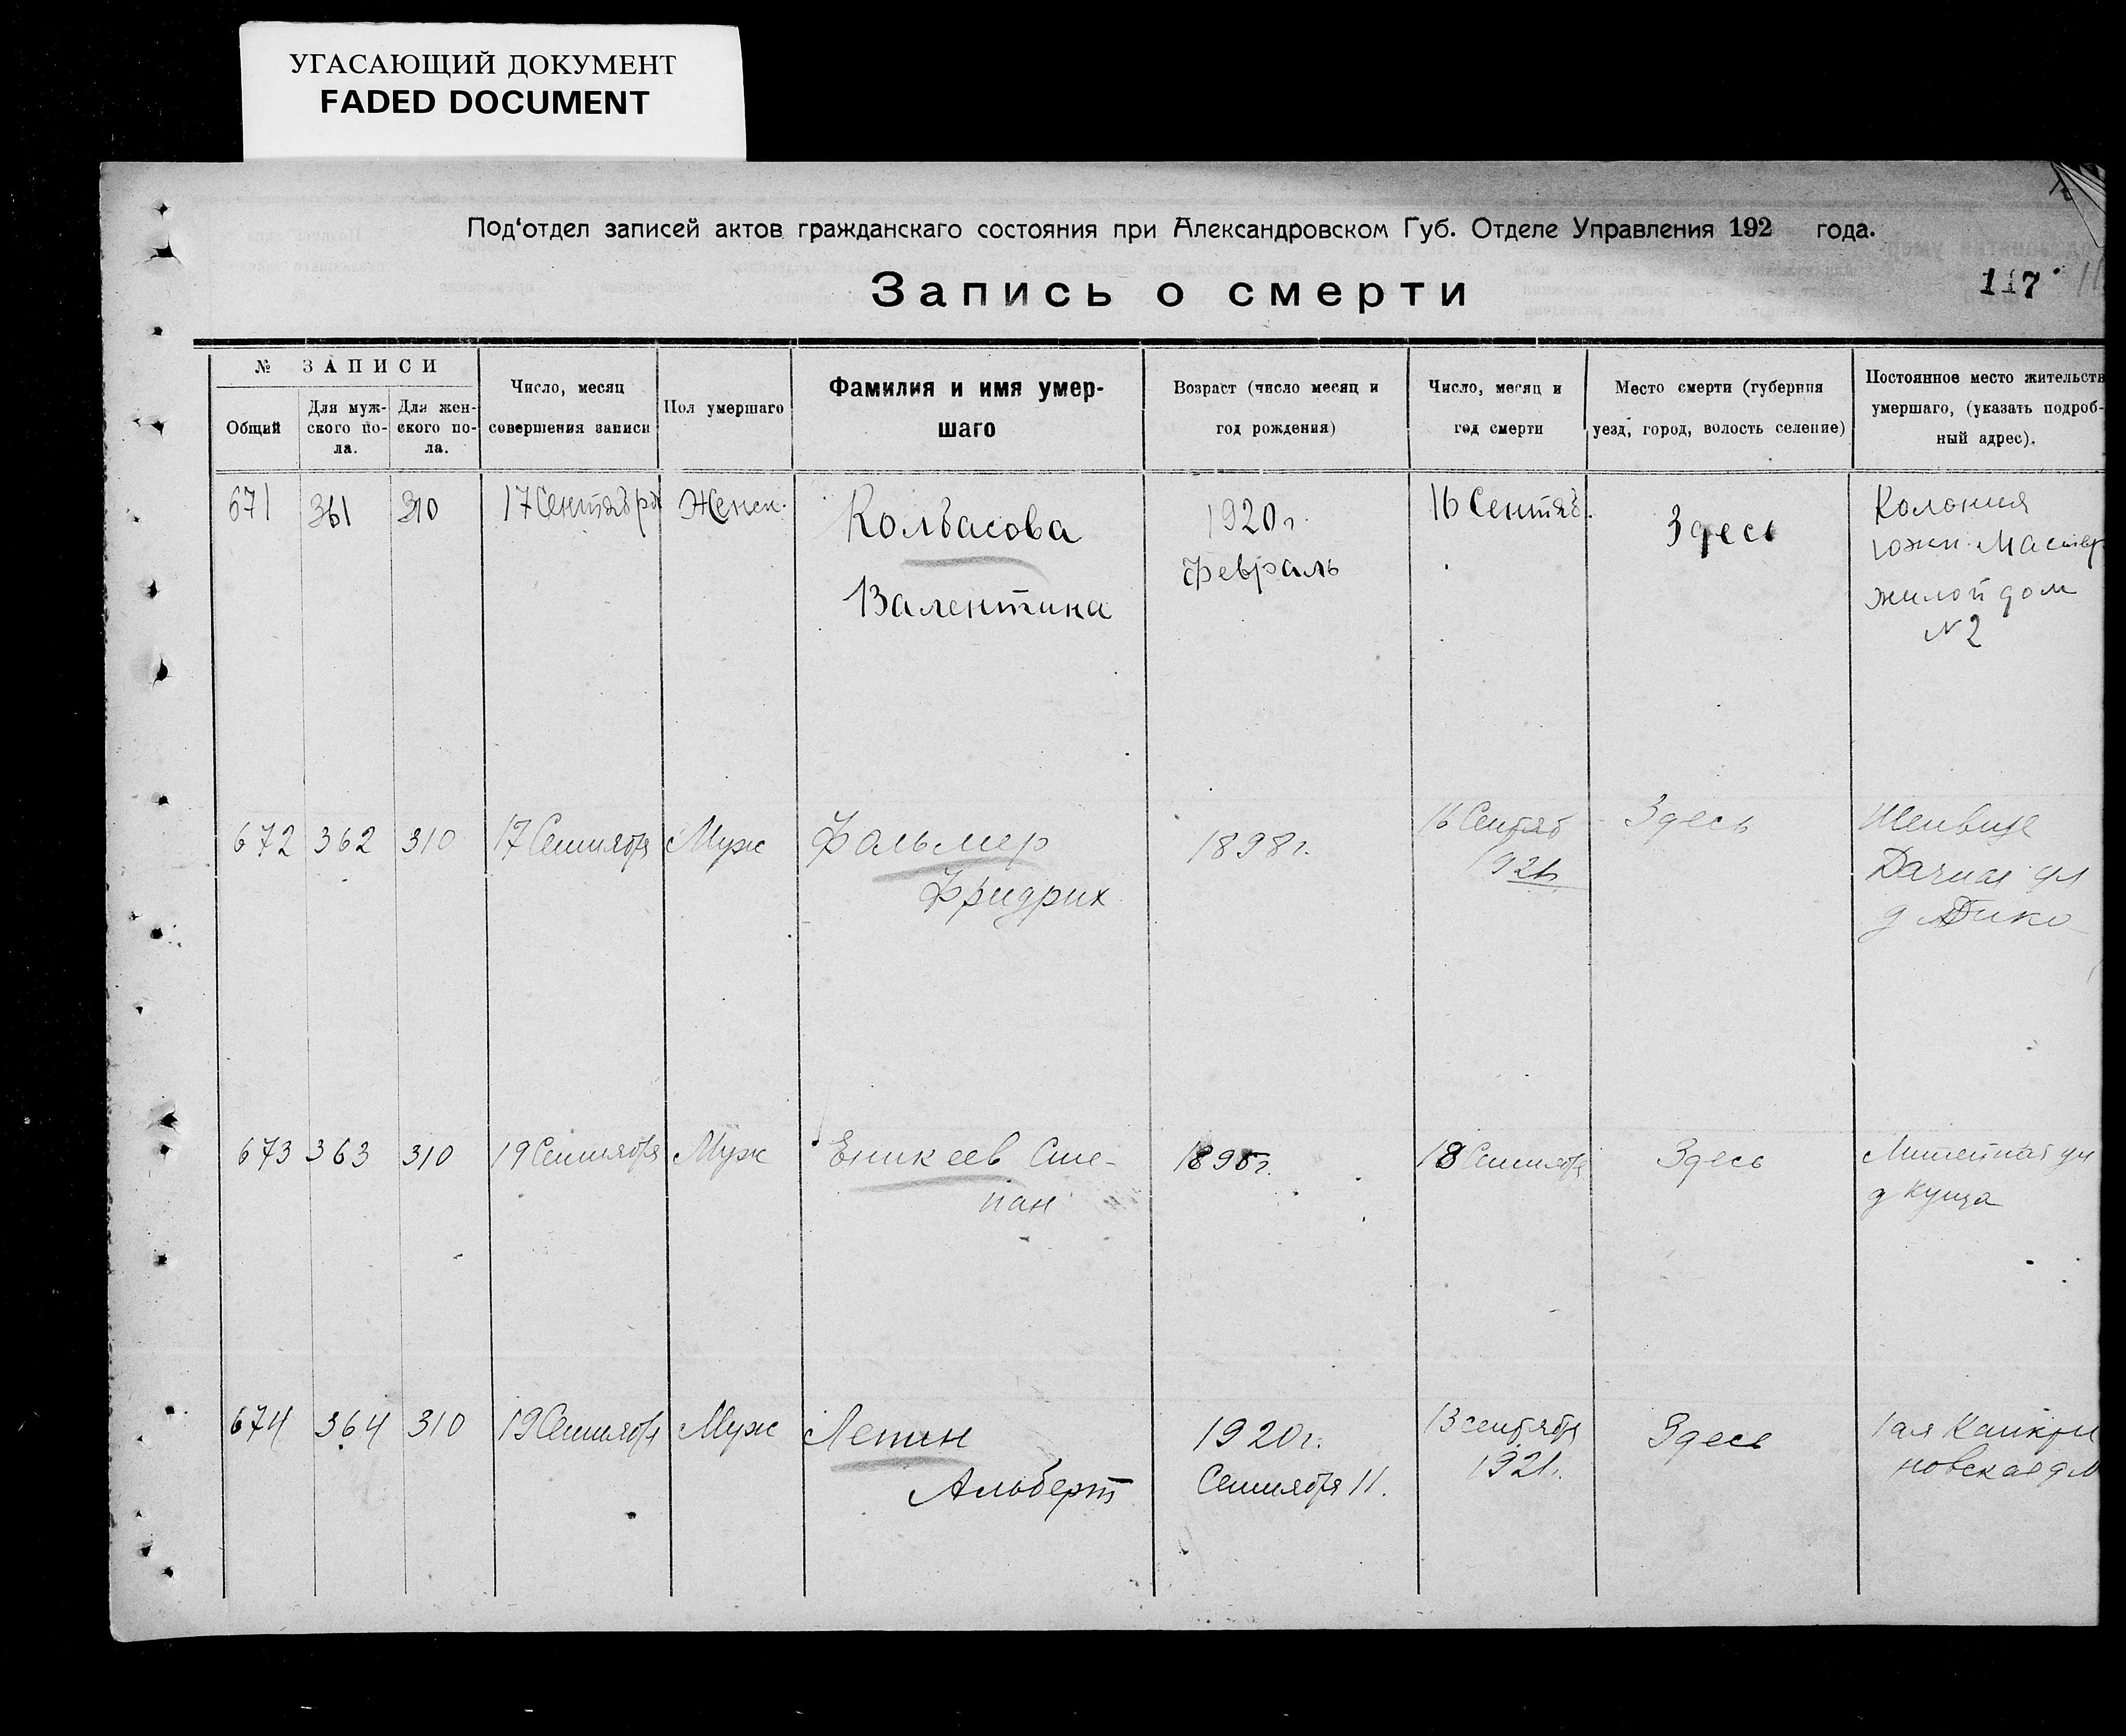 УГАСАЮЩИЙ ДОКУМЕНТ
FADED DOCUMENT
Под‘отдел записей актов гражданскаго состояния при Александровском Губ. Отделе Управления 192 года.
Запись о смерти
117
№ ЗАПИСИ
Общий
Для муж-
ского по-
ла.
Для жен-
ского по-
ла.
Число, месяц
совершения записи
Пол умершаго
Фамилия и имя умер-
шаго
Возраст (число месяц и
год рождения)
Число, месяц и
год смерти
Место смерти (губерния
уезд, город, волость селение)
Постоянное место жительств
умершаго, (указать подроб-
ный адрес).
671
361
310
17 Сентября
Женск.
Колбасова
Валентина
1920г.
Февраль
16 Сентяб.
Здесь
Колония
южн. Мастер
жилой дом
№ 2
672
362
310
17 Сентября
Муж
Фольмер
Фридрих
1898г.
16 Сентяб
1921
Здесь
Шенвизе
Дачная ул
673
363
310
19 Сентября
Муж
Еникеев Сте-
пан
1898г.
18 Сентября
Здесь
Литейная ул
674
364
310
19 Сентября
Муж
Лепин
Альберт
1920г.
Сентября 11.
13 сентября
1921г.
Здесь
1ая
новская